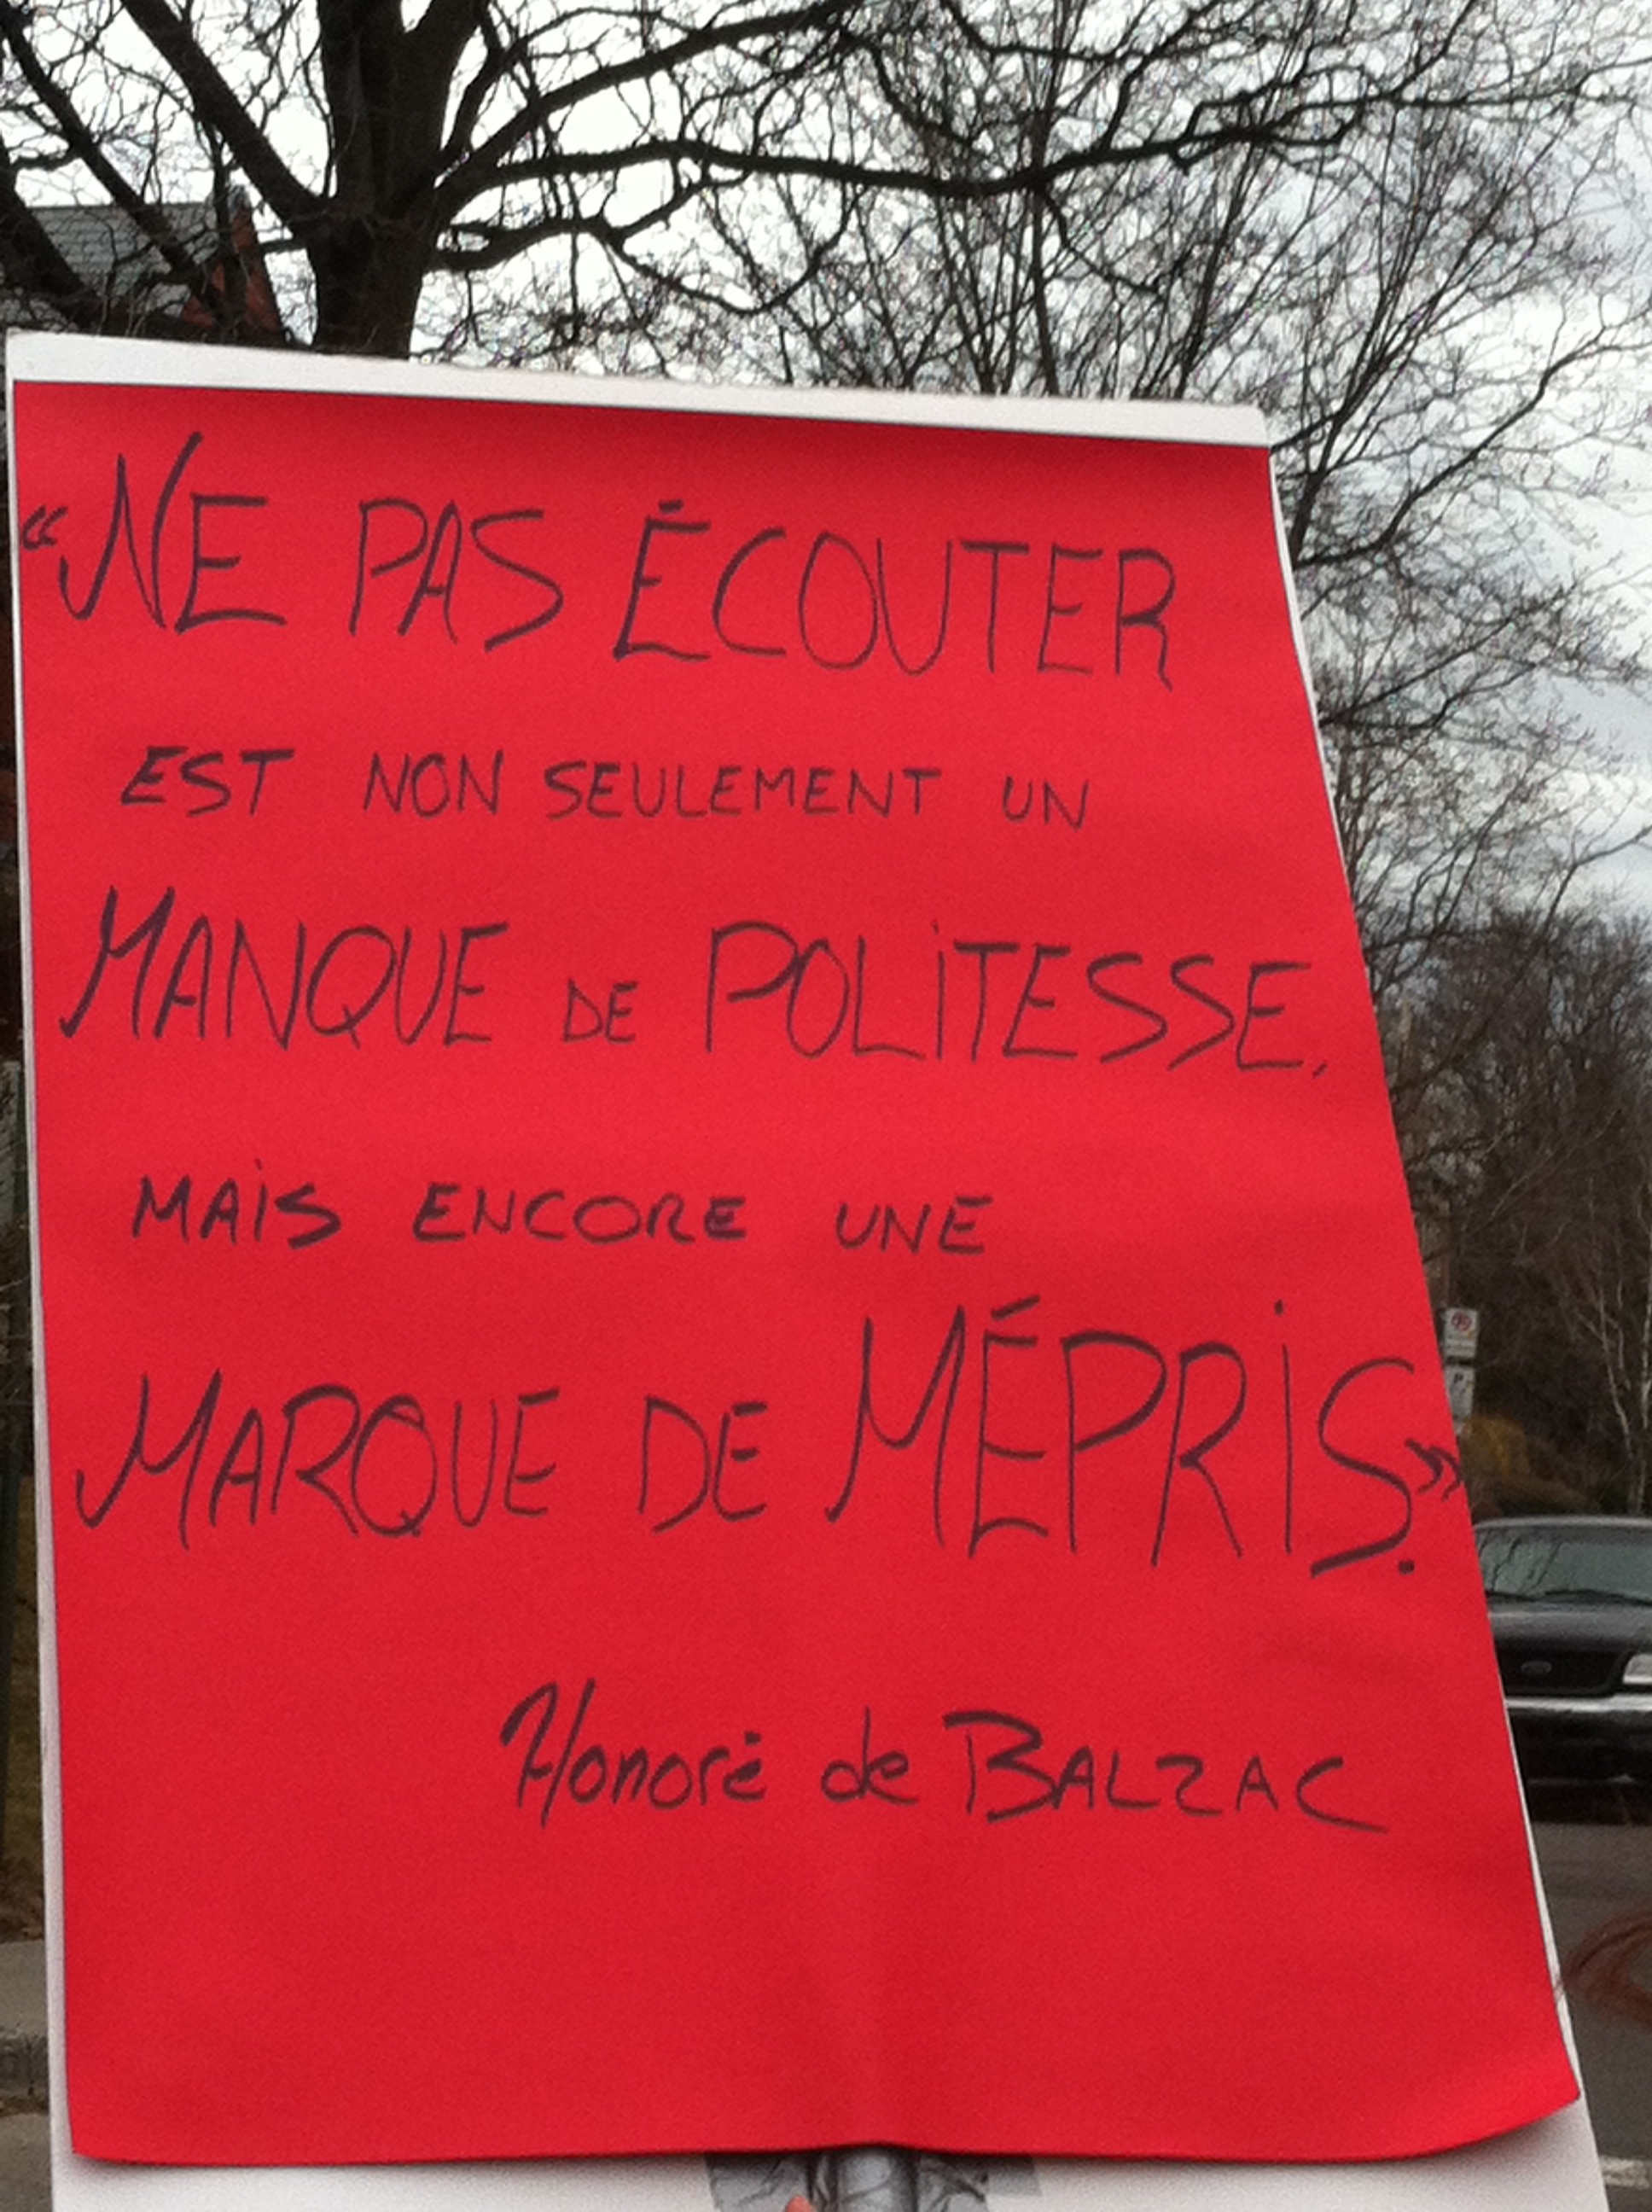 “NE PAS ÉCOUTER
EST NON SEULEMENT UN
MANQUE DE POLITESSE,
MAIS ENCORE UNE
MARQUE DE MÉPRIS.”
Honoré de BALZAC